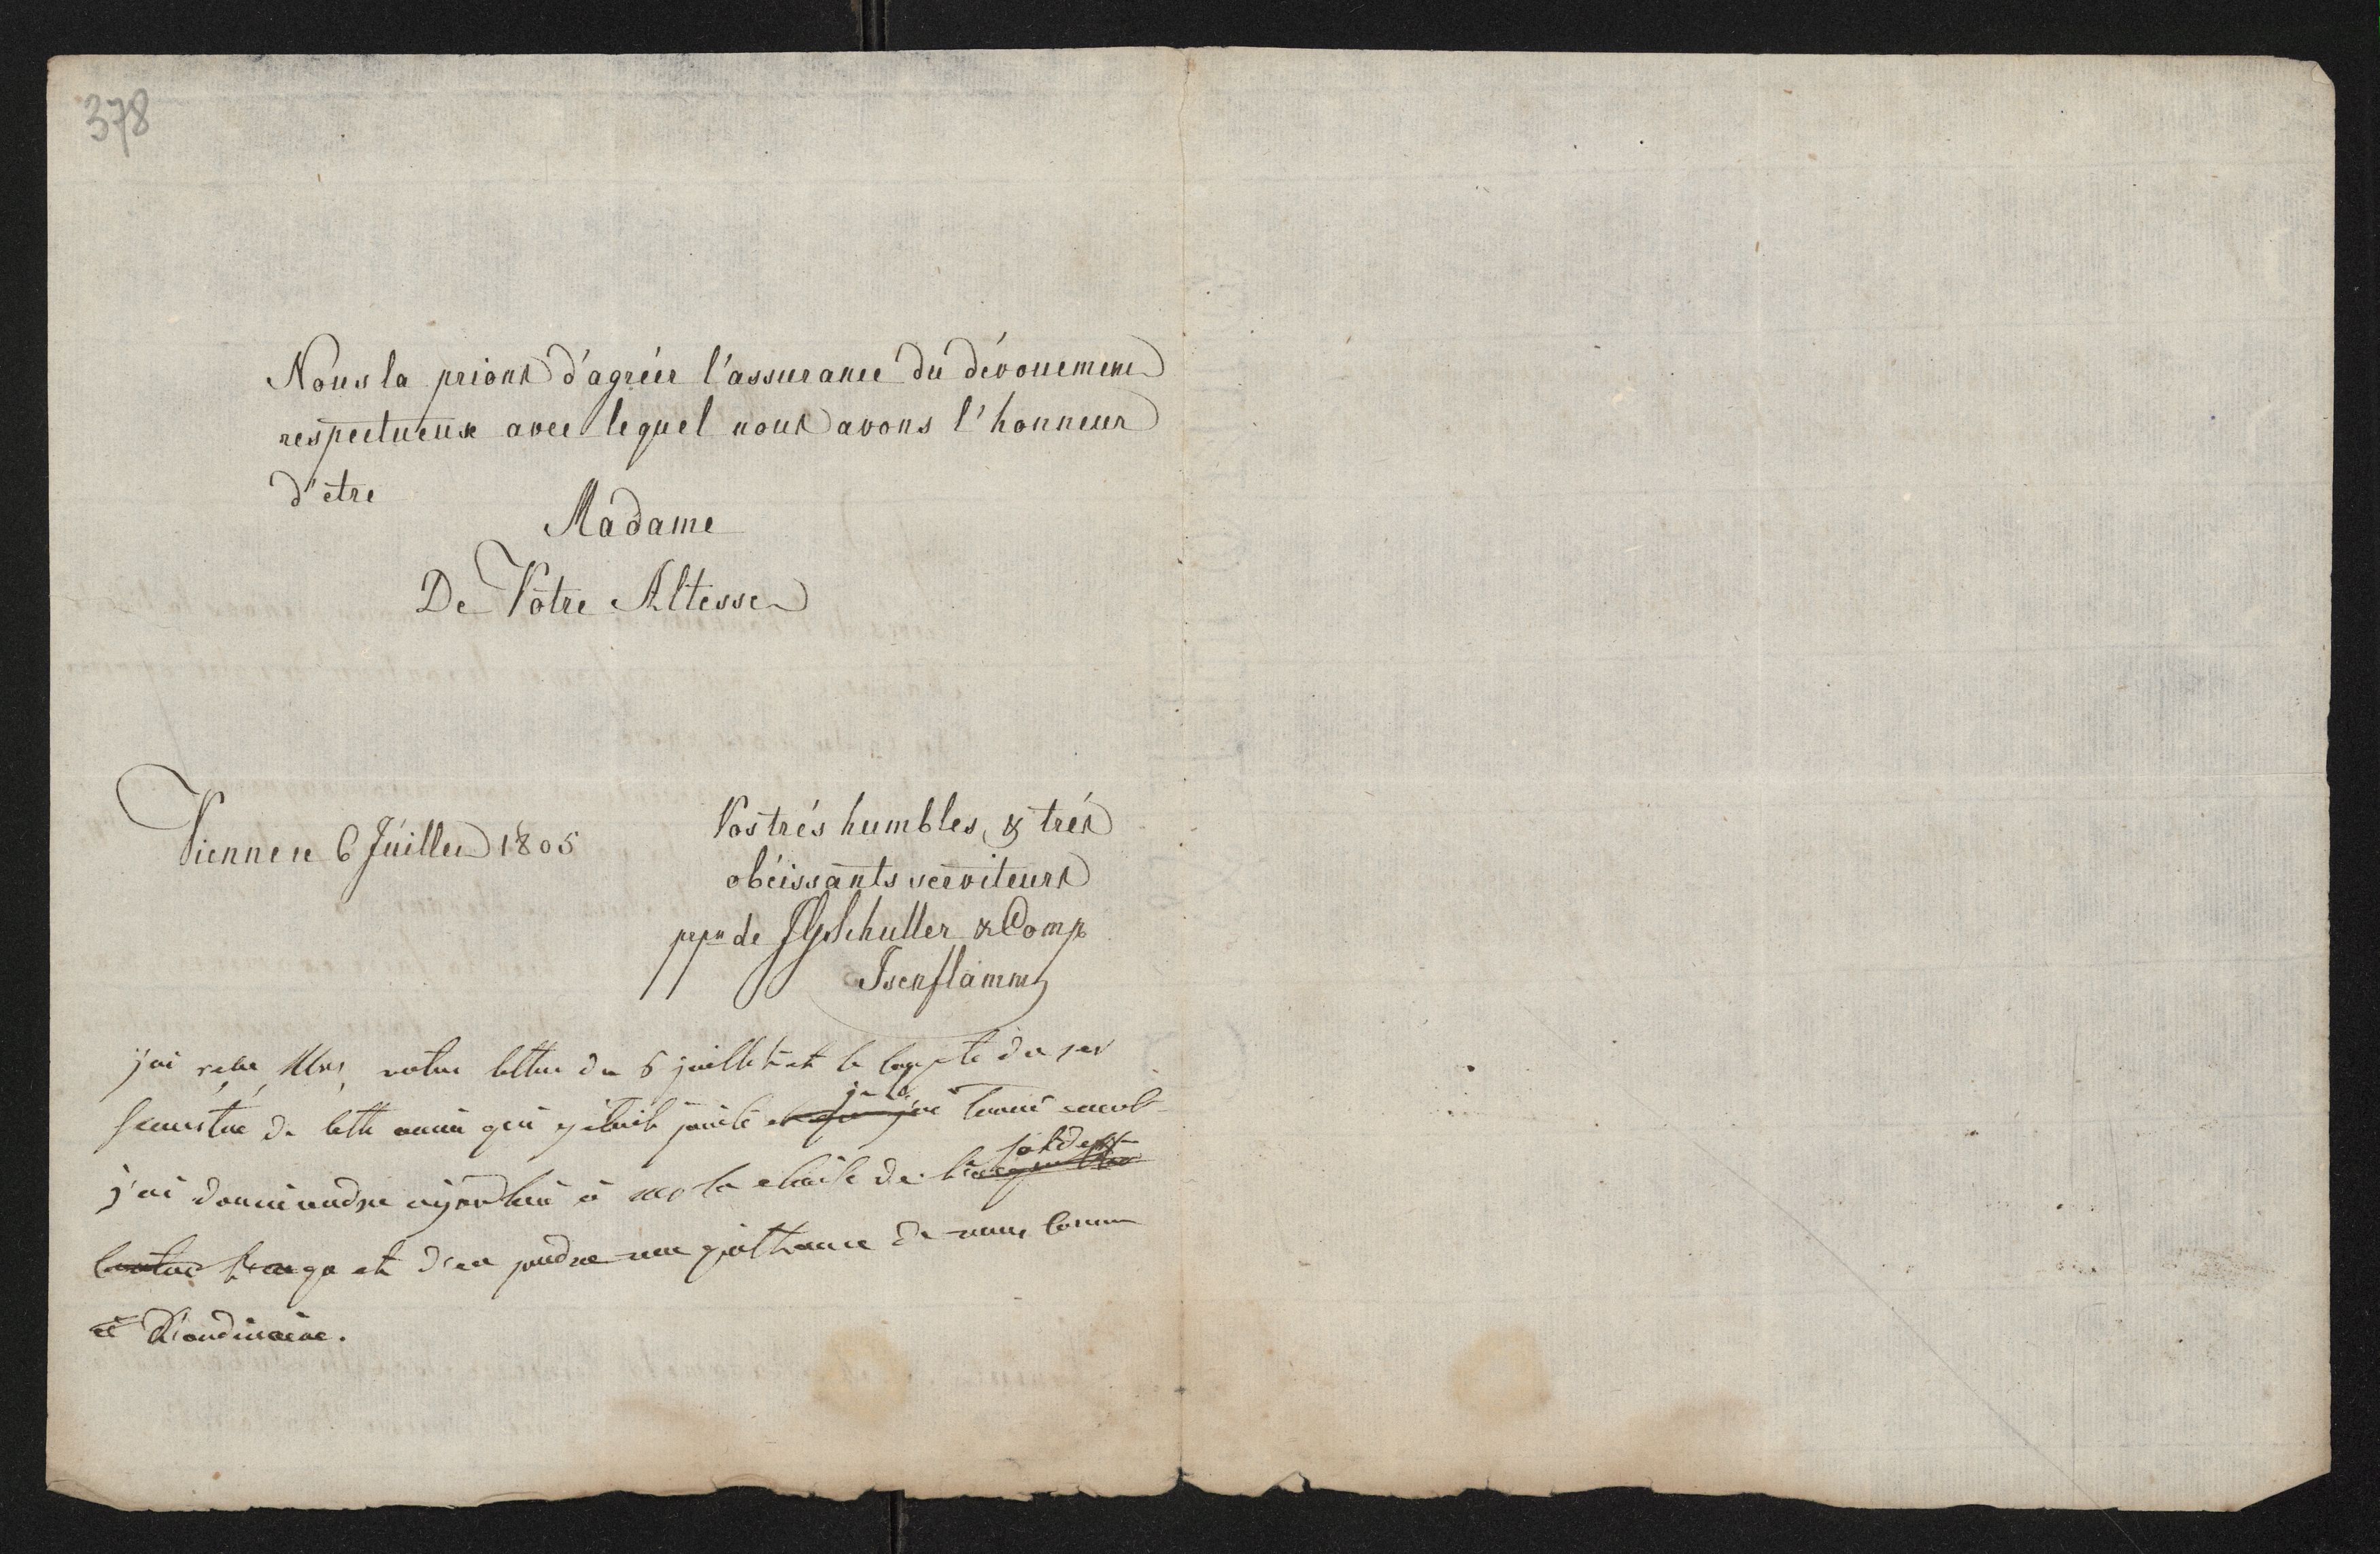 378
Nous la prions d'agréer l'assurance du dévouement
respectueux avec lequel nous avons l'honneur
d'etre
Madame
De Votre Altesse
Vienne ce 6 Juillet 1805
Vos trés humbles, & trés
obéissants serviteurs
de JG Schuller & Comp
Isenflamm
j'ai votre lettre du 6 juillet et le compte du 1er
Semestre de cette année qui y étoit joint je l'ai trouvé
j'ai donné ordre à solder
et d'en prendre une quittance de vous comme
à l'ordinaire.